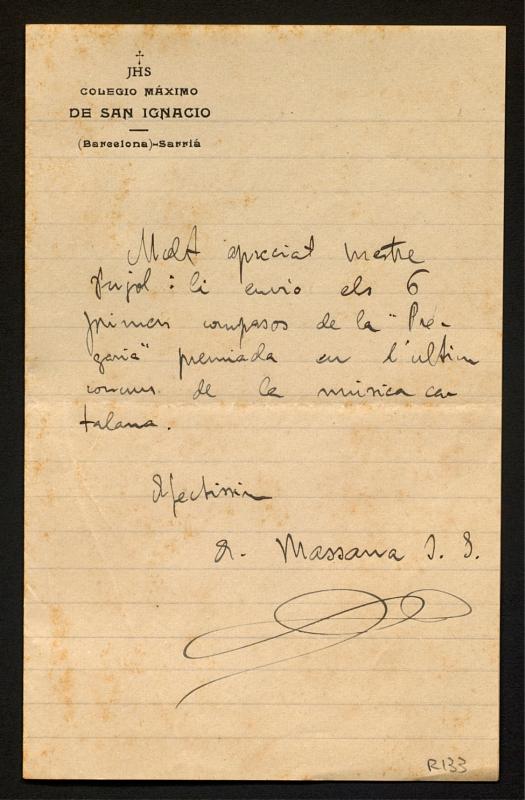 JHS
COLEGIO MÁXIMO
DE SAN IGNACIO
(Barcelona)-Sarriá
Molt apreciat mestre
Pujol: li envio els 6
primers compasos de la "Pre-
garia" premiada en l'ultim
concurs de la música ca
talana.
Afectissim
A. Massana S. J.
R133